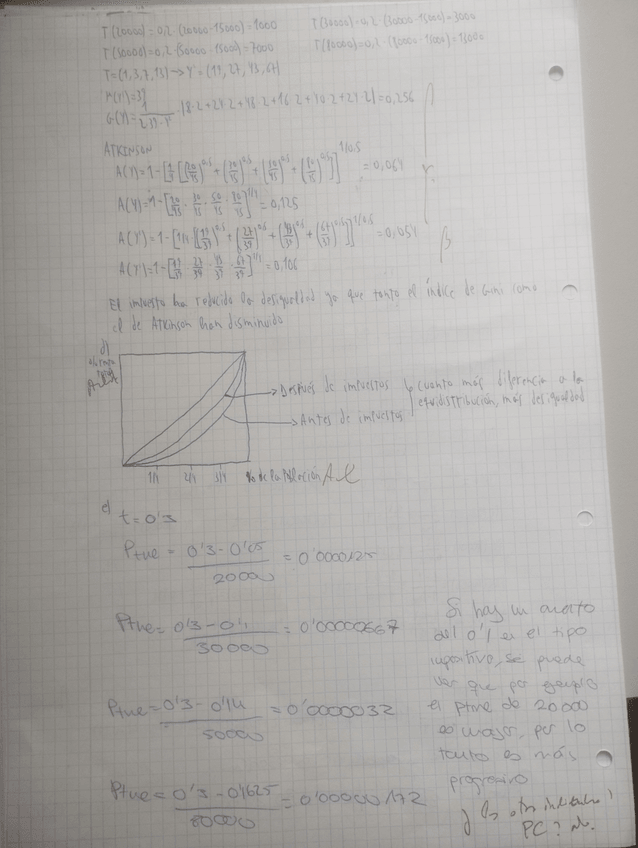 T(20000)=0,2·(20000-15000)=1000 T(30000)=0,2·(30000-15000)=3000
T(50000)=0,2·(50000-15000)=7000 T(80000)=0,2·(80000-15000)=13000
T=(1,3,7,13)→Y'=(19,27,43,67)
μ(Y')=39
G(Y')= 1 |8·2+24·2+48·2+16·2+40·2+24·2|=0,256
ATKINSON
A(Y)=1-[1/4[(20/45)^0,5+(30/45)^0,5+(50/45)^0,5+(80/45)^0,5]]^1/0.5=0,064
A(Y)=1-[20/45·30/45·50/45·80/45]^1/4=0,125
A(Y')=1-[1/4[(19/39)^0,5+(27/39)^0,5+(43/39)^0,5+(67/39)^0,5]]^1/0,5=0,054
A(Y')=1-[19/39·27/39·43/39·67/39]^1/4=0,106
El impuesto ha reducido la desigualdad ya que tanto el índice de Gini como
el de Atkinson han disminuido
d)
→Después de impuestos cuanto más diferencia a la
equidistribución, más desigualdad
→Antes de impuestos
1/4 2/4 3/4 % de la población
e) t=0'3
Ptme = 0'3-0'05 / 20000 = 0'0000125
Ptme = 0'3-0'1 / 30000 = 0'00000667
Ptme = 0'3-0'14 / 50000 = 0'0000032
Ptme = 0'3-0'1625 / 80000 = 0'00000172
Si hay un
0'1 en el tipo
impositivo, se puede
ver que por ejemplo
el ptme de 20000
es mayor, por lo
tanto es más
progresivo
PC?